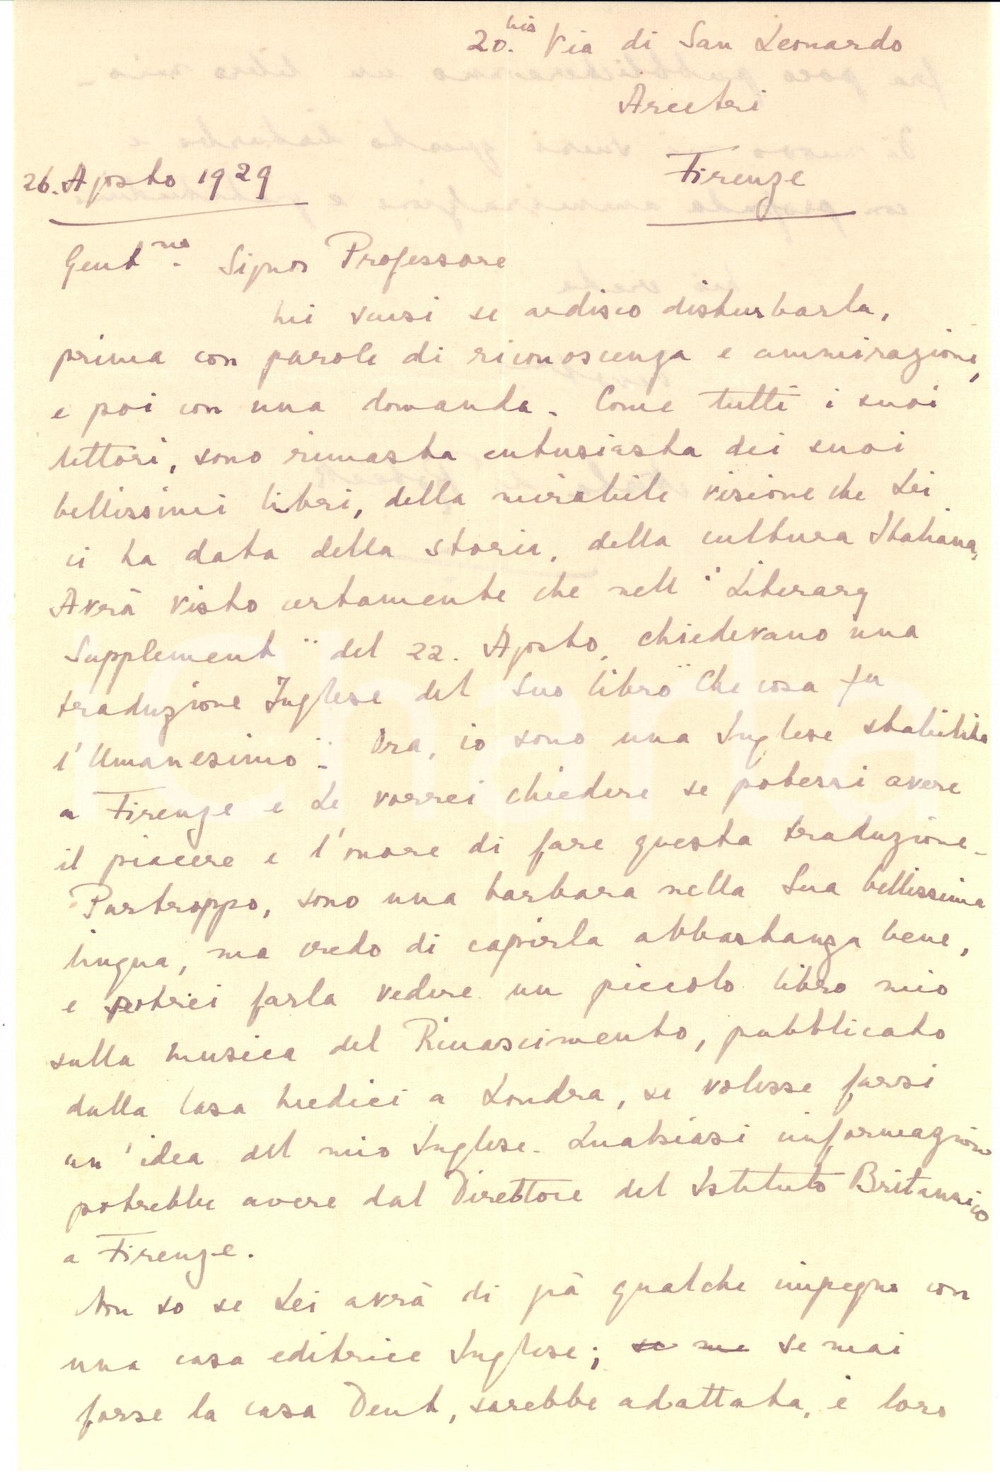 20.bis Via di San Leonardo
Arcetri
Firenze
26. Agosto 1929
Gent.mo Signor Professore
Mi scusi se ardisco disturbarla,
prima con parole di riconoscenza e ammirazione,
e poi con una domanda. Come tutti i suoi
lettori, sono rimasta entusiasta dei suoi
bellissimi libri, della mirabile visione che Lei
ci ha data della storia, della cultura Italiana.
Avrà visto certamente che nell "Literary
Supplement" del 22. Agosto, chiedevano una
traduzione Inglese del Suo libro "Che cosa fu
l'Umanesimo". Ora, io sono una Inglese stabilita
a Firenze e Le vorrei chiedere se potessi avere
il piacere e l'onore di fare questa traduzione.
Purtroppo, sono una barbara nella Sua bellissima
lingua, ma credo di capirla abbastanza bene,
e potrei farla vedere un piccolo libro mio
sulla Musica del Rinascimento, pubblicato
dalla Casa Medici a Londra, se volesse farsi
un'idea del mio Inglese. Qualsiasi informazione
potrebbe avere dal Direttore del Istituto Britannico
a Firenze.
Non so se Lei avrà di già qualche impegno con
una casa editrice Inglese; se me se mai
forse la casa Dent, sarebbe adattata, e loro